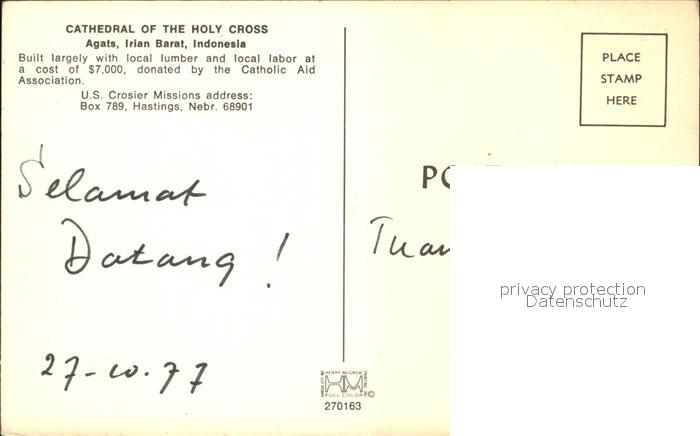 CATHEDRAL OF THE HOLY CROSS
Agats, Irian Barat, Indonesia
Built largely with local lumber and local labor at
a cost of $7,000, donated by the Catholic Aid
Association.
U.S. Crosier Missions address:
Box 789, Hastings, Nebr. 68901
Selamat
Datang!
27-10-77
PLACE
STAMP
HERE
PO
Tuan
privacy protection
Datenschutz
HENRY McGREW
PRINTING
HM
FULL COLOR
©
270163